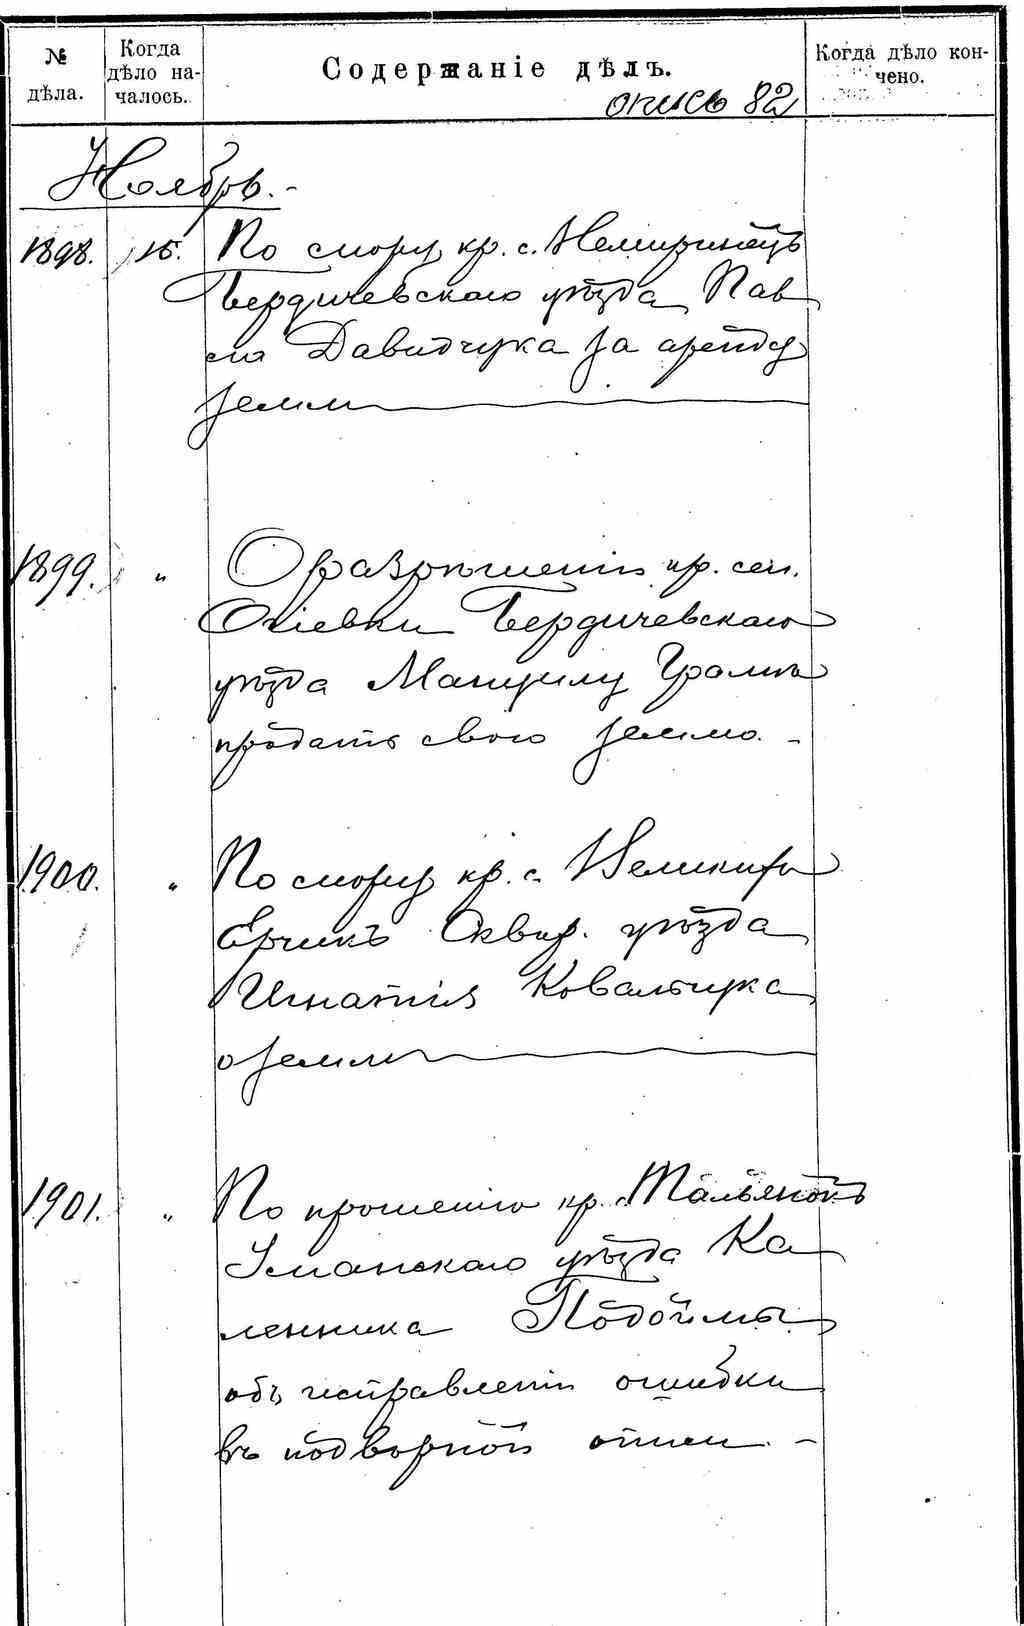 № дѣла.
Когда дѣло на-
чалось.
Содержаніе дѣлъ.
Когда дѣло кон-
чено.
опись 82
Ноябрь.-
1898. 15. По спору кр. с. Немиринецъ
Бердичевскаго уѣзда Пав
ла Давидчука за аренду
земли
1899. " О разрѣшеніи кр. сел.
Огіевки Бердичевскаго
уѣзда Мануилу
продать свою землю. -
1900. " По спору кр. с. Великихъ
Ерчикъ Сквир. уѣзда
Игнатія Ковальчука
о земли
1901. " По прошенію кр. с. Тальянокъ
Уманскаго уѣзда Ка
ленника Подоймы
объ исправленіи ошибки
въ подворной описи. -